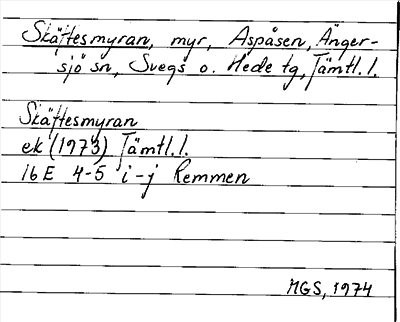 Skäftesmyran, myr, Aspåsen, Änger-
sjö sn, Svegs o. Hede tg, Jämtl. l.
Skäftesmyran
ek (1973) Jämtl. l.
16E 4-5 i-j Remmen
MGS, 1974